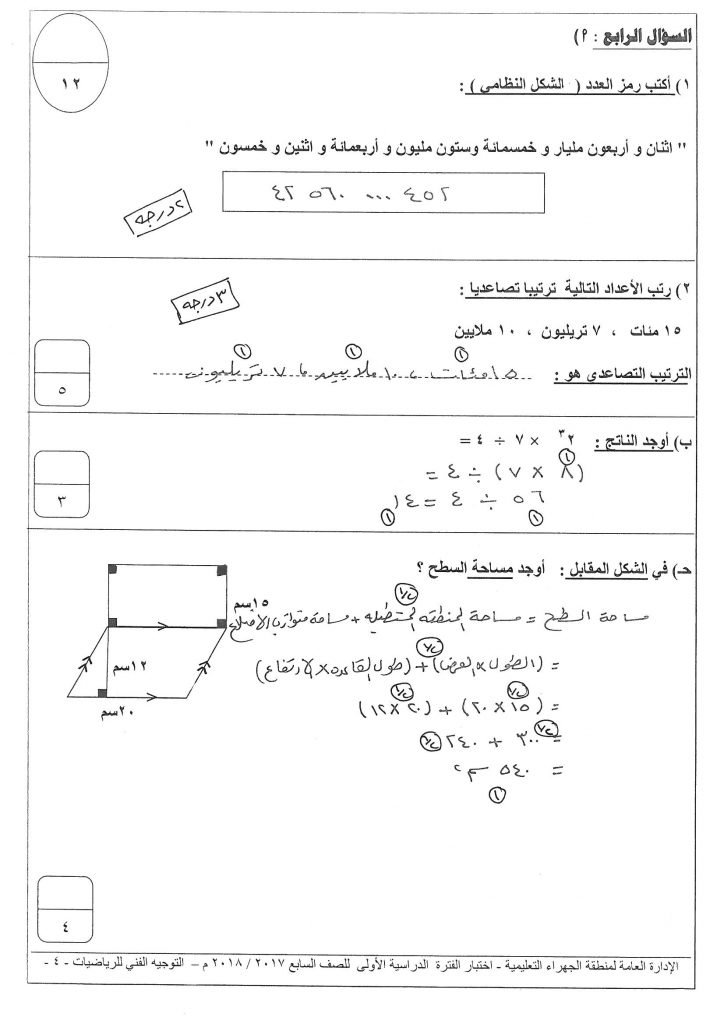 السؤال الرابع : ٩)
١٢
١) أكتب رمز العدد ( الشكل النظامي ) :
" اثنان و أربعون مليار و خمسمائة وستون مليون و أربعمائة و اثنين و خمسون "
٤٢ ٥٦٠ ... ٤٥٢
٢ درجه
٢) رتب الأعداد التالية ترتيبا تصاعديا :
٣ درجه
١٥ مئات ، ٧ تريليون ، ١٠ ملايين
① ① ①
الترتيب التصاعدي هو : ١٥ مئات ، ١٠ ملايين ، ٧ تريليون
٥
ب) أوجد الناتج : ٢٣ × ٧ ÷ ٤ =
①
(٨ × ٧) ÷ ٤ =
٥٦ ÷ ٤ = ١٤
① ①
٣
حـ) في الشكل المقابل : أوجد مساحة السطح ؟
١٥سم
١٢سم
٢٠سم
١/٢
مساحة السطح = مساحة المنطقه المستطيله + مساحة متوازي الاضلاع
١/٢
= (الطول × العرض) + (طول القاعده × الارتفاع)
١/٢ ١/٢
= (١٥ × ٢٠) + (٢٠ × ١٢)
١/٢ ١/٢
= ٣٠٠ + ٢٤٠
= ٥٤٠ سم٢
①
٤
الإدارة العامة لمنطقة الجهراء التعليمية - اختبار الفترة الدراسية الأولى للصف السابع ٢٠١٧ / ٢٠١٨ م – التوجيه الفني للرياضيات - ٤ -